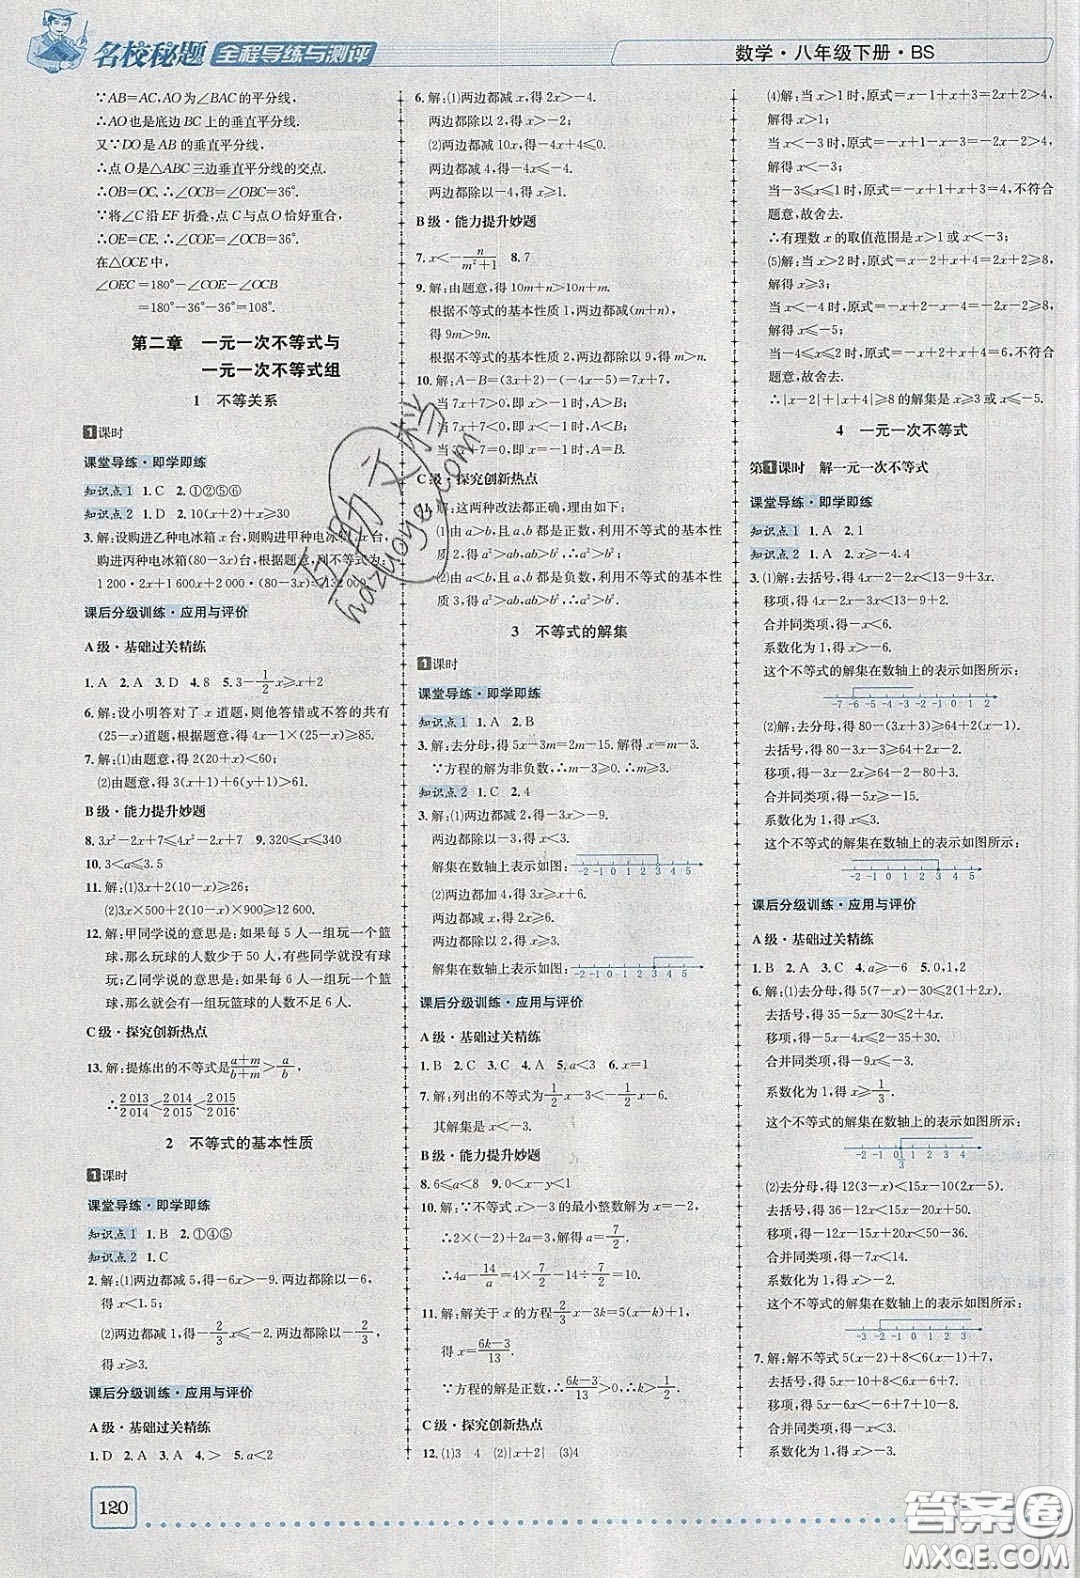 名校秘题 全程导练与测评
数学·八年级下册·BS
∵AB=AC,AO为∠BAC的平分线,
∴AO也是底边BC上的垂直平分线.
又∵DO是AB的垂直平分线,
∴点O是△ABC三边垂直平分线的交点.
∴OB=OC,∴∠OCB=∠OBC=36°.
∵将∠C沿EF折叠,点C与点O恰好重合,
∴OE=CE.∴∠COE=∠OCB=36°.
在△OCE中,
∠OEC=180°-∠COE-∠OCB
=180°-36°-36°=108°.
第二章 一元一次不等式与
一元一次不等式组
1 不等关系
1课时
课堂导练·即学即练
知识点1 1.C 2.①②⑤⑥
知识点2 1.D 2.10(x+2)+x≥30
3.解:设购进乙种电冰箱x台,则购进甲种电冰箱2x台,
购进丙种电冰箱(80-3x)台,根据题意,列不等式为:
1 200·2x+1 600x+2 000·(80-3x)≤132 000.
课后分级训练·应用与评价
A级·基础过关精练
1.A 2.A 3.D 4.8 5.3-1/2x≥x+2
6.解:设小明答对了x道题,则他答错或不答的共有
(25-x)道题,根据题意,得4x-1×(25-x)≥85.
7.解:(1)由题意,得2(20+x)<60;
(2)由题意,得3(x+6)+(x+1)≥61.
B级·能力提升妙题
8.3x²-2x+7≤4x²-2x+7 9.320≤x≤340
10.3<a≤3.5
11.解:(1)3x+2(10-x)≥26;
(2)3x×500+2(10-x)×900≥12 600.
12.解:甲同学说的意思是:如果每5人一组玩一个篮
球,那么玩球的人数少于50人,有些同学就没有球
玩;乙同学说的意思是:如果每6人一组玩一个篮
球,那么就会有一组玩篮球的人数不足6人.
C级·探究创新热点
13.解:提炼出的不等式是(a+m)/(b+m)>a/b,
∴2 013/2 014<2 014/2 015<2 015/2 016.
2 不等式的基本性质
1课时
课堂导练·即学即练
知识点1 1.B 2.①④⑤
知识点2 1.C
2.解:(1)两边都减5,得-6x>-9.两边都除以-6,
得x<1.5;
(2)两边都减1,得-2/3x≤-2.两边都除以-2/3,
得x≥3.
课后分级训练·应用与评价
A级·基础过关精练
1.D 2.A 3.A 4.C 5.a<2
6.解:(1)两边都减x,得2x>-4.
两边都除以2,得x>-2;
(2)两边都减10x,得-4x+4≤0.
两边都减4,得-4x≤-4.
两边都除以-4,得x≥1.
B级·能力提升妙题
7.x<-n/(m²+1) 8.7
9.解:由题意,得10m+n>10n+m.
根据不等式的基本性质1,两边都减(m+n),
得9m>9n.
根据不等式的基本性质2,两边都除以9,得m>n.
10.解:A-B=(3x+2)-(-4x-5)=7x+7,
当7x+7>0,即x>-1时,A>B;
当7x+7=0,即x=-1时,A=B;
当7x+7<0,即x<-1时,A<B.
C级·探究创新热点
11.解:这两种改法都正确,理由如下:
(1)由a>b,且a,b都是正数,利用不等式的基本性
质2,得a²>ab,ab>b²,∴a²>b²;
(2)由a<b,且a,b都是负数,利用不等式的基本性
质3,得a²>ab,ab>b²,∴a²>b².
3 不等式的解集
1课时
课堂导练·即学即练
知识点1 1.A 2.B
3.解:去分母,得5x-3m=2m-15.解得x=m-3.
∵方程的解为非负数,∴m-3≥0.∴m≥3.
知识点2 1.C 2.4
3.解:(1)两边都减2,得-3x>-9.
两边都除以-3,得x<3.
解集在数轴上表示如图: -2 -1 0 1 2 3 4 5
(2)两边都加4,得2x≥x+6.
两边都减x,得x≥6.
两边都除以2,得x≥3.
解集在数轴上表示如图: -2 -1 0 1 2 3 4 5
课后分级训练·应用与评价
A级·基础过关精练
1.B 2.C 3.C 4.A 5.a<3 6.x=1
7.解:列出的不等式是1/2x-3<-1/2x-6.
其解集是x<-3.
B级·能力提升妙题
8.6≤a<8 9.0<-y<1
10.解:∵不等式x>-3的最小整数解为x=-2,
∴2×(-2)+2a=3,解得a=7/2.
∴4a-14/a=4×7/2-14÷7/2=10.
11.解:解关于x的方程2/3x-3k=5(x-k)+1,
得x=(6k-3)/13.
∵方程的解是正数,∴(6k-3)/13>0.∴k>1/2.
C级·探究创新热点
12.(1)3 4 (2)|x+2| (3)4
(4)解:当x>1时,原式=x-1+x+3=2x+2>4,
解得x>1;
当x<-3时,原式=-x+1-x-3=-2x-2>4,
解得x<-3;
当-3≤x≤1时,原式=-x+1+x+3=4,不符合
题意,故舍去.
∴有理数x的取值范围是x>1或x<-3.
(5)解:当x>2时,原式=x-2+x+4=2x+2≥8,
解得x≥3;
当x<-4时,原式=-x+2-x-4=-2x-2≥8,
解得x≤-5;
当-4≤x≤2时,原式=-x+2+x+4=6,不符合
题意,故舍去.
∴|x-2|+|x+4|≥8的解集是x≥3或x≤-5.
4 一元一次不等式
第1课时 解一元一次不等式
课堂导练·即学即练
知识点1 1.A 2.1
知识点2 1.A 2.x≥-4.4
3.(1)解:去括号,得4x-4+2<13-9+3x.
移项,得4x-3x<13-9+4-2.
合并同类项,得x<6.
系数化为1,得x<6.
这个不等式的解集在数轴上的表示如图所示:
-7 -6 -5 -4 -3 -2 -1 0 1
(2)解:去分母,得80-(3x+3)≥64+2(x-2).
去括号,得80-3x-3≥64+2x-4.
移项,得-3x-2x≥64-4-80+3.
合并同类项,得-5x≥-17.
系数化为1,得x≤17/5.
这个不等式的解集在数轴上的表示如图所示:
-2 -1 0 1 2 3 4 5
课后分级训练·应用与评价
A级·基础过关精练
1.B 2.A 3.C 4.a≥-6 5.0,1,2
6.解:(1)去分母,得5(7-x)-30≤2(1+2x).
去括号,得35-5x-30≤2+4x.
移项,得-5x-4x≤2-35+30.
合并同类项,得-9x≤-3.
系数化为1,得x≥1/3.
这个不等式的解集在数轴上的表示如图所示:
-4 -3 -2 -1 0 1/3 1 2 3 4 5 6
(2)去分母,得12(3-x)-15x≤10x+50.
去括号,得36-12x-15x-20≤10x+50.
移项,得-12x-15x-10x≤50-36+20.
合并同类项,得-37x≤34.
这个不等式的解集在数轴上的表示如图所示:
-3 -2 -1 0 1 2 3 4
7.解:解不等式5(x-2)+8<6(x-1)+7,
去括号,得5x-10+8<6x-6+7.
移项,得5x-6x<-6+7+10-8.
合并同类项,得-x<3.
系数化为1,得x>-3.
120
互助文档
hdzuoye.com
答案圈
MXQE.COM